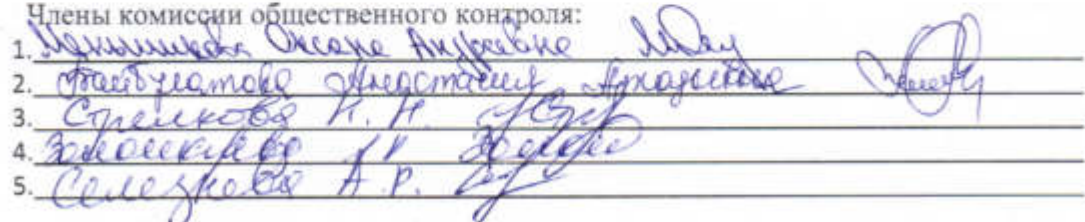 Члены комиссии общественного контроля:
1. Меньшикова Оксана Андреевна
2. Тайбулатова Анастасия Аркадьевна
3. Стрелкова Н. Н.
4.
5. Селезнева А. Р.